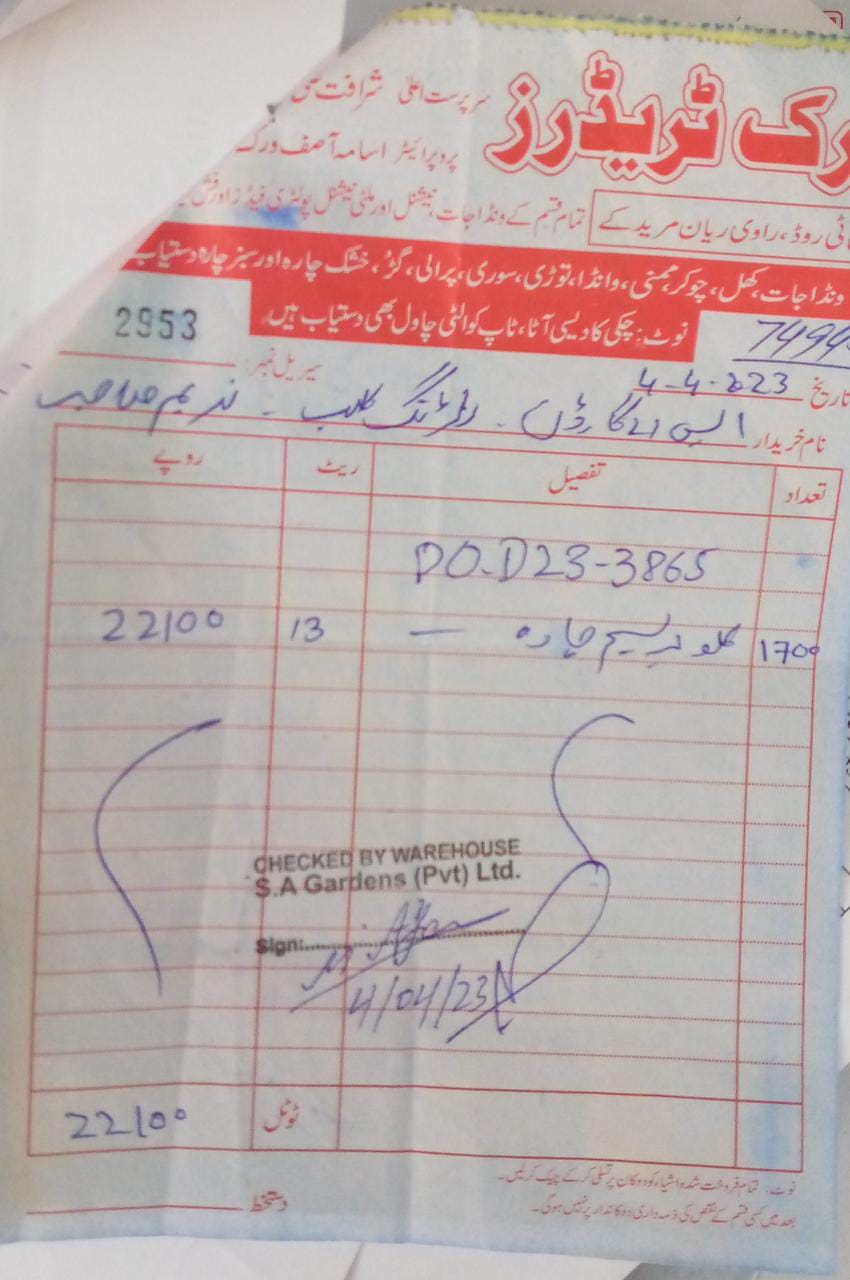 رک ٹریڈرز
سرپرست اعلیٰ شرافت
پروپرائیٹر اسامہ آصف ورک
ٹی روڈ، راوی ریان مرید کے
تمام قسم کے ونڈا جات، نیشنل اور ملٹی نیشنل پولٹری فیڈز اور فش
ونڈا جات، کھل، چوکر، ممنی، وانڈا، توڑی، سوری، پرالی، گڑ، خشک چارہ اور سبز چارہ دستیاب
نوٹ: چکی کا دیسی آٹا، ٹاپ کوالٹی چاول بھی دستیاب ہیں۔
7494
سیریل نمبر: 2953
تاریخ 4-4-2023
نام خریدار ایس اے گارڈن - رائڈنگ کلب - ندیم صاحب
تعداد تفصیل ریٹ روپے
PO.D23-3865
1700 کلو برسیم چارہ — 13 22100
CHECKED BY WAREHOUSE
S.A Gardens (Pvt) Ltd.
Sign:
4/04/23
ٹوٹل 22100
نوٹ: تمام فروخت شدہ اشیاء کو دوکان پر تسلی کر کے چیک کر لیں۔
بعد میں کسی قسم کے نقص کی ذمہ داری دوکاندار پر نہیں ہوگی۔
دستخط